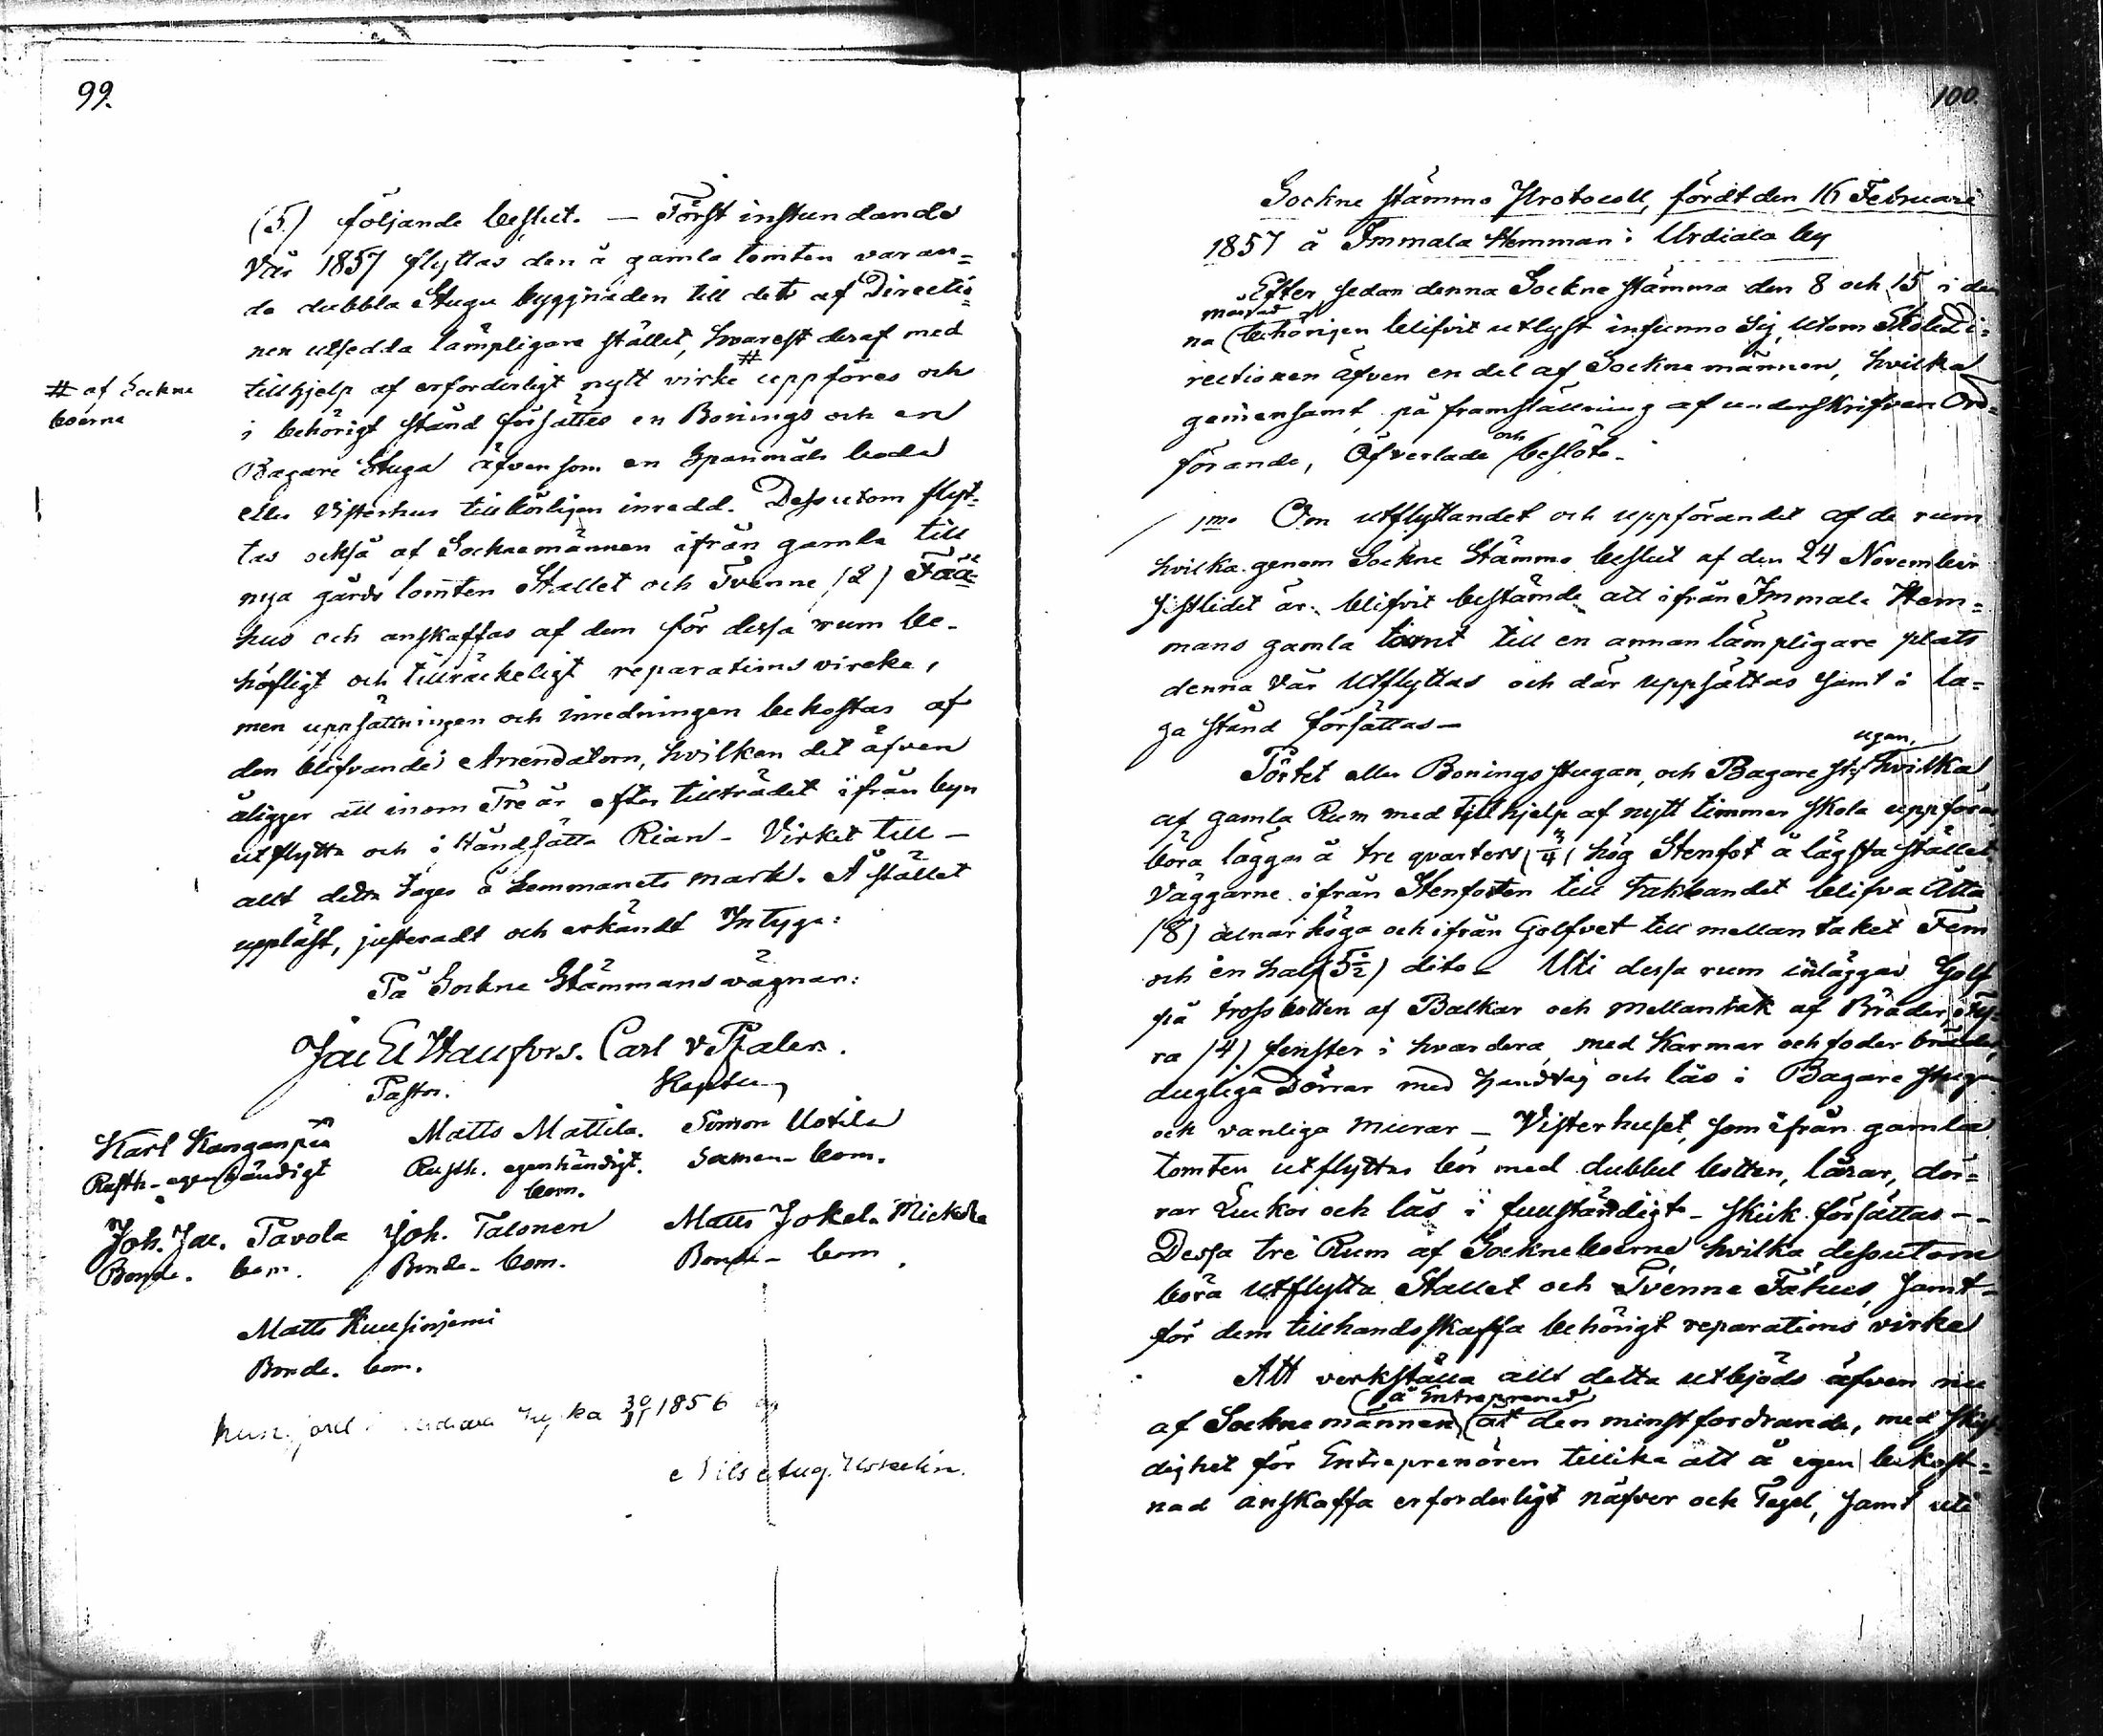 99.
(5.) följande beslut. — Först instundande
Vår 1857 flyttas den å gamla tomten varan=
de dubbla Stugu byggnaden till dets af Directio=
nen utsedda lämpligare stället, hvarest deraf med
tillhjelp af erforderligt nytt virke # uppföres och
# af Sockne
boerne
i behörigt stånd försättes en Bonings och en
Bagare Stuga äfvensom en Spanmåls boda
eller Visterhus tillbörligen inredd. Dessutom flyt=
tas också af Socknemännen ifrån gamla till
nya gårds tomten Stallet och Tvenne (2) Fää=
hus och anskaffas af dem för dessa rum be-
höfligt och tillräckeligt reparations vircke,
men uppsättningen och inredningen bekostas af
den blifvande Arrendatorn, hvilken det äfven
åligger att inom Tre år efter tillträdet ifrån byn
utflytta och i ståndsätta Rian - Virket till -
allt detta tages å hemmanets mark. Å stället
uppläst, justeradt och erkändt Intyga:
På Sockne Stämmans vägnar:
Jac El Wanfors. Carl v Pfaler.
Pastor. Kapten
Karl Kanganpää Matts Mattila. Simon Uotila
Rusth. egenhändigt Rusth. egenhändigt. Samen. bom.
bom.
Joh. Jac. Pavola Joh. Talonen Matts Jokela Mickola
Bonde. bom. Bonde. bom. Bonde - bom
Matts Kuusiniemi
Bonde. bom.
kyrka 30/11 1856
Nils Aug.
100.
Sockne stämmo Protocoll, fördt den 16 Februari
1857 å Immala Hemman i Urdiala by
Efter sedan denna Sockne stämma den 8 och 15 i den
månad
na behörigen blifvit utlyst infunno sig, utom Skole Di=
rectionen äfven en del af Socknemännen, hvilka
gemensamt på framställning af underskrifven Ord=
förande, Öfverlade och beslöto.-
1mo Om utflyttandet och uppförandet af de rum
hvilka genom Sockne Stämmo beslut af den 24 November
sistlidet år blifvit bestämde att ifrån Immala Hem=
mans gamla tomt till en annan lämpligare plats
denna vår Utflyttas och där uppsättas samt i la=
ga stånd försättas —
ugan,
Pörtet eller Bonings stugan, och Bagare st hvilka
af gamla Rum med tillhjelp af nytt timmer skola uppföras
böra läggas å tre qvarters (3/4) hög Stenfot å lägsta stället.
Väggarne ifrån Stenfoten till takbandet blifva Åtta
(8) alnar höga och ifrån Golfvet till mellan taket Fem
och en half (5½) dito - Uti dessa rum inläggas Golf
på trossbotten af Balkar och mellantak af Bräder, Fy=
ra (4) fenster i hvardera med Karmar och foder bräder,
dugliga Dörrar med handtag och lås i Bagare stugan
och vanliga murar — Visterhuset, som ifrån gamla
tomten utflyttas bör med dubbel botten, lårar, dör=
rar Luckor och lås i fullständigt - skick försättas - -
Dessa tre Rum af Socknebboerne hvilka dessutom
böra utflytta Stallet och Tvenne Fähus, samt -
för dem tillhandsskaffa behörigt reparations virke
Att verkställa allt detta utbjöds äfven nu
å Entreprenad
af Socknemännen åt den minstfordrande, med skyl=
dighet för Entreprenören tillika att å egen bekost=
nad anskaffa erforderligt näfver och Tegel, samt uti